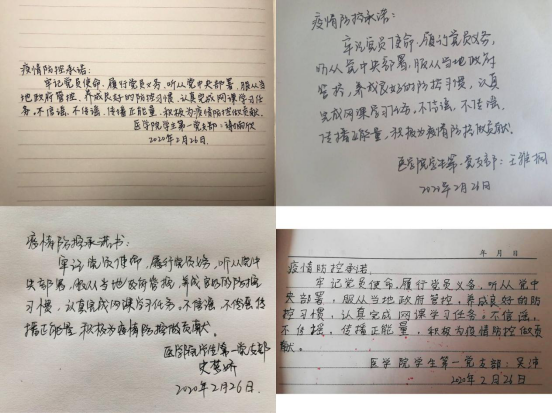 疫情防控承诺:
牢记党员使命,履行党员义务,听从党中央部署,服从当
地政府管控,养成良好的防控习惯,认真完成网课学习任
务。不信谣,不传谣,传播正能量,积极为疫情防控做贡献。
医学院学生第一党支部:
2020年2月26日.
疫情防控承诺:
牢记党员使命,履行党员义务,
听从党中央部署,服从当地政府
管控,养成良好的防控习惯,认真
完成网课学习任务。不信谣,不传谣,
传播正能量,积极为疫情防控做贡献。
医学院学生第一党支部:王雅桐
2020年2月26日
疫情防控承诺书:
牢记党员使命,履行党员义务,听从党中
央部署,服从当地政府管控,养成良好的防控
习惯,认真完成网课学习任务。不信谣,不传谣,传
播正能量,积极为疫情防控做贡献。
医学院学生第一党支部
史梦娇
2020年2月26日.
年 月 日
疫情防控承诺:
牢记党员使命,履行党员义务,听从党中
央部署,服从当地政府管控,养成良好的防
控习惯,认真完成网课学习任务。不信谣,
不传谣,传播正能量,积极为疫情防控做贡
献。
医学院学生第一党支部:吴沛
2020年2月26日